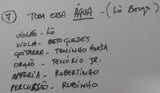 7) TODA ESSA ÁGUA - (Lô Borges)
VIOLÃO - LÔ
VIOLA - BETO GUEDES
GUITARRA - TONINHO HORTA
ORGÃO - TENÓRIO JR.
BATERIA - ROBERTINHO
PERCUSSÃO - RUBINHO